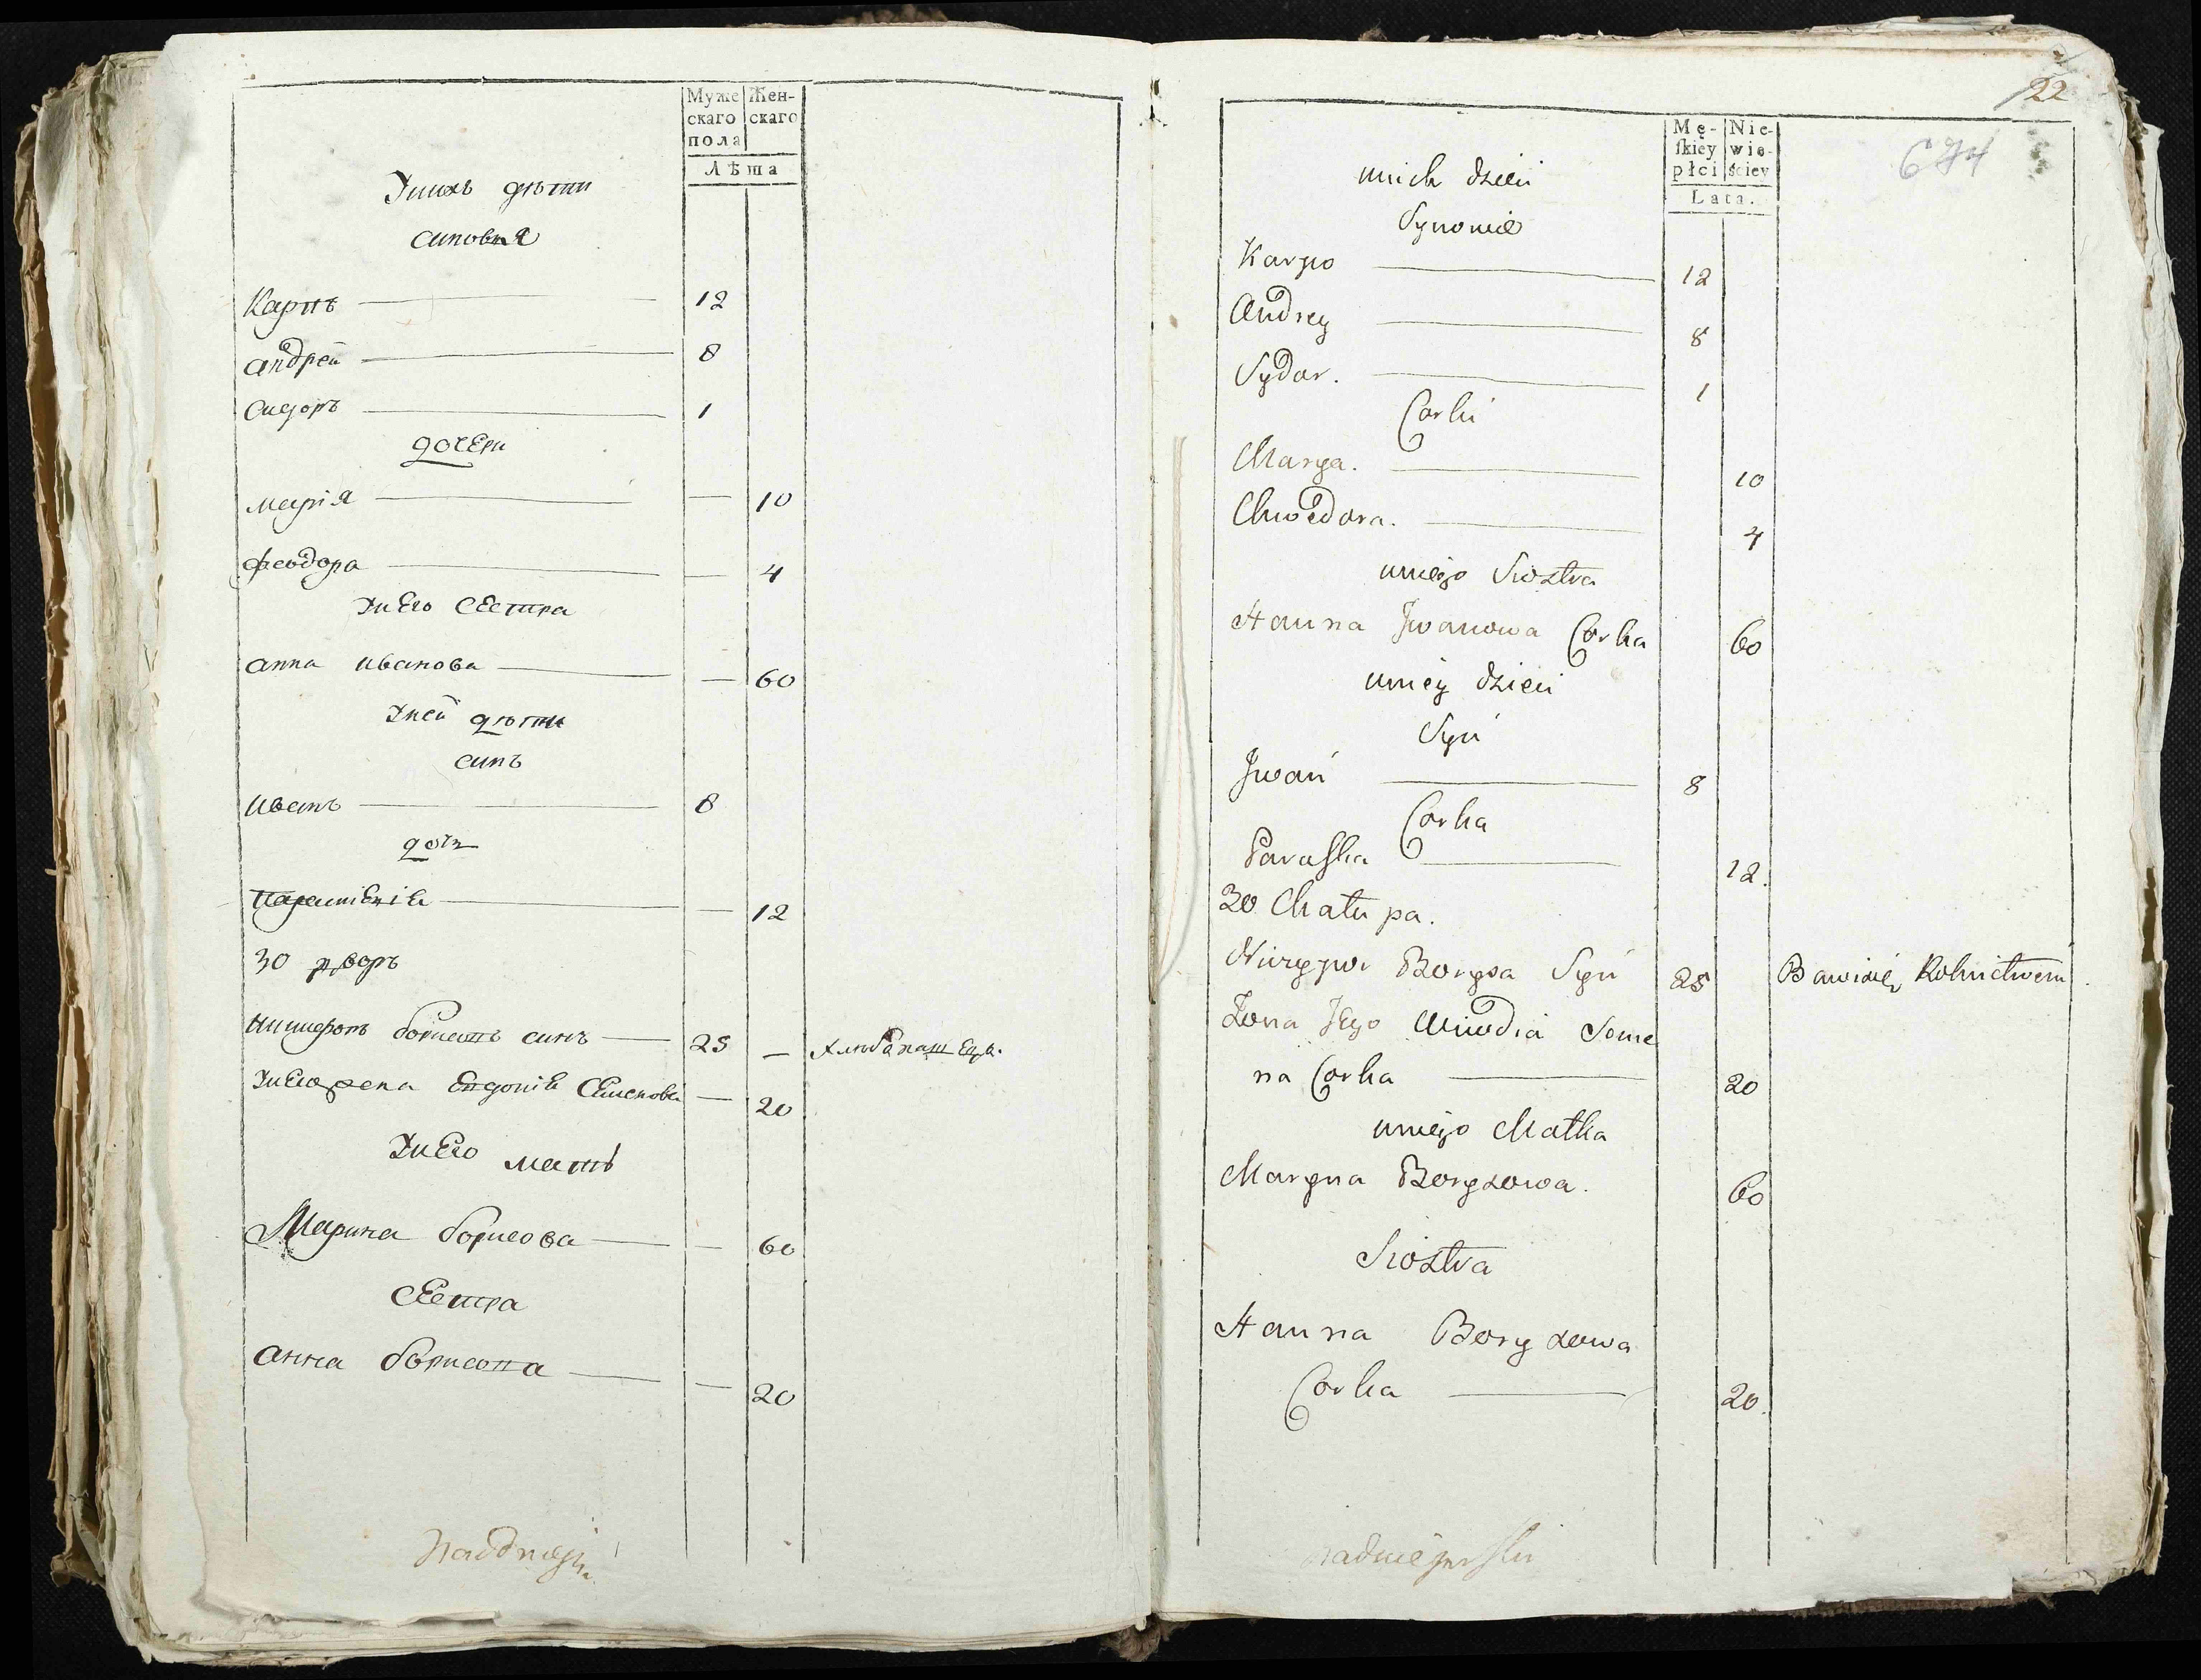 Муже Жен-
скаго скаго
пола
Лѣта
Унихъ дѣти
синовья
Карпъ 12
андрей 8
Сидоръ 1
дочери
марія — 10
феодора — 4
Унего сестра
анна иванова — 60
Уней дѣти
синъ
иванъ 8
дочь
Парасковія — 12
30 дворъ
Ничипоръ борисовъ синъ 25 — хлебопашецъ.
Унего жена Евдокія Семенова — 20
Унего мать
Марина борисова — 60
Сестра
анна борисова — 20
22
674
Mę- Nie-
ſkiey wie-
płci ściey
Lata.
unich dzieci
Synowie
Karpo 12
Andrey 8
Sydor. 1
Corki
Marya. 10
Chwedora. 4
uniego Siostra
Hanna Jwanowa Corka 60
uniey dzieci
Syn
Jwan 8
Corka
Paraſka 12.
30 Chatupa.
NiczyporBorysa Syn 25 Bawi się Rolnictwem.
Zona Jego Awdia Seme
na Corka 20
uniego Matka
Maryna Borysowa. 60
Siostra
Hanna Borysowa
Corka 20.